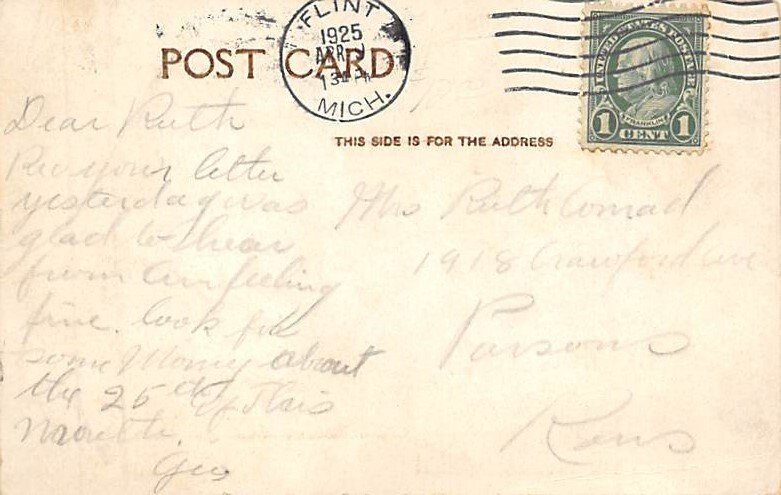 FLINT
1925
APR
MICH.
POST CARD
UNITED STATES POSTAGE
FRANKLIN
1 CENT 1
THIS SIDE IS FOR THE ADDRESS
Dear Ruth
Rec your letter
yesterday was
glad to hear
from am feeling
fine. look for
some Money about
the 25th of this
month.
Geo
Mrs Ruth Conrad
1918 Crawford Ave
Parsons
Kans